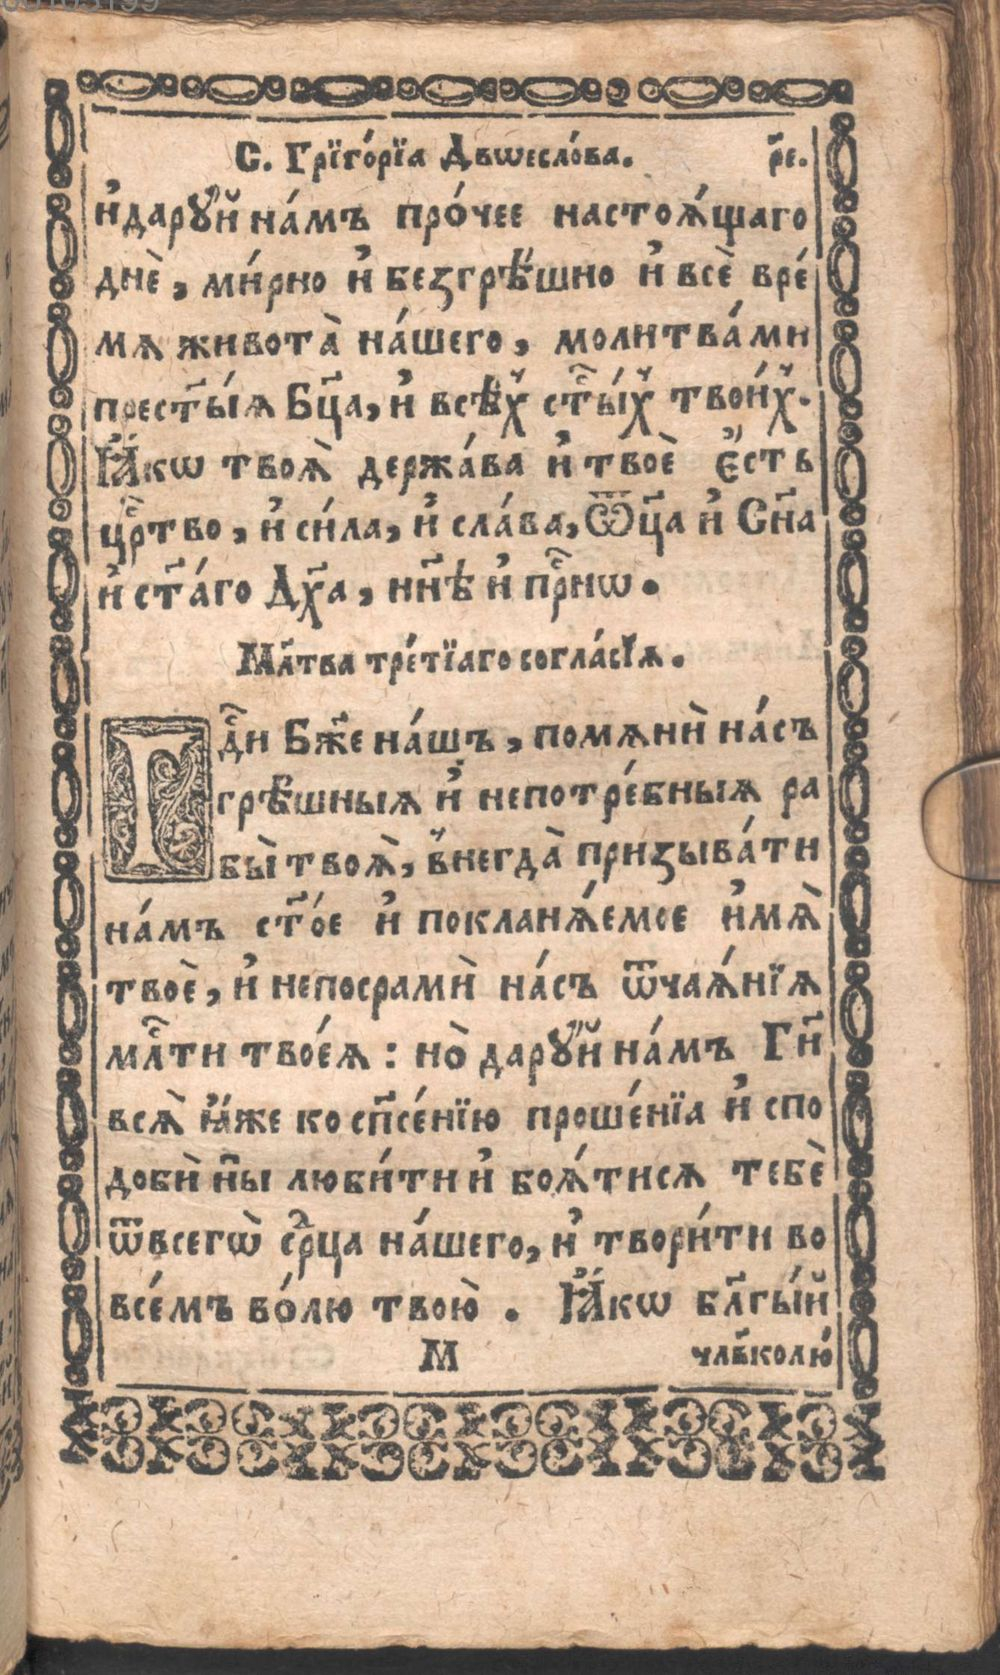 С. Грїго́рїа Двѡесло́ва. р҃е.
и҆даруй на́мъ про́чее настоѧ́щаго
днѐ, ми́рно и҆ безгрѣ́шно и҆ всѐ вре́
мѧ живота̀ на́шего, молитва́ми
прест҃ы́ѧ Бц҃а, и҆ всѣ́х ст҃ы́х твои́х.
Ꙗ҆́кѡ твоѧ̀ держа́ва и҆ твоѐ є҆́сть
црⷭ҇тво, и҆ си́ла, и҆ сла́ва, Ѿц҃а и҆ Сн҃а
и҆ ст҃а́го Дх҃а, нн҃ѣ и҆ прⷭ҇нѡ.
Мл҃тва тре́тїаго согла́сїѧ.
Гдⷭ҇и Бж҃е на́шъ, помѧнѝ на́съ
грѣ́шныѧ и҆ непотре́бныѧ ра
бы̀ твоѧ̀, внегда̀ призыва́ти
на́мъ ст҃о́е и҆ покланѧ́емое и҆мѧ̀
твоѐ, и҆ непосрамѝ на́съ ѿчаѧ́нїѧ
млⷭ҇ти твоеѧ̀: но̀ даруй на́мъ Гн҃
всѧ̀ ꙗ҆́же ко сп҃се́нїю проше́нїа и҆ спо
добѝ н҃ы люби́ти и҆ боѧ́тисѧ тебѐ
ѿвсегѡ̀ срⷣца на́шего, и҆ твори́ти во
все́мъ во́лю твою̀. Ꙗ҆́кѡ бл҃гы́й
М члв҃колю́